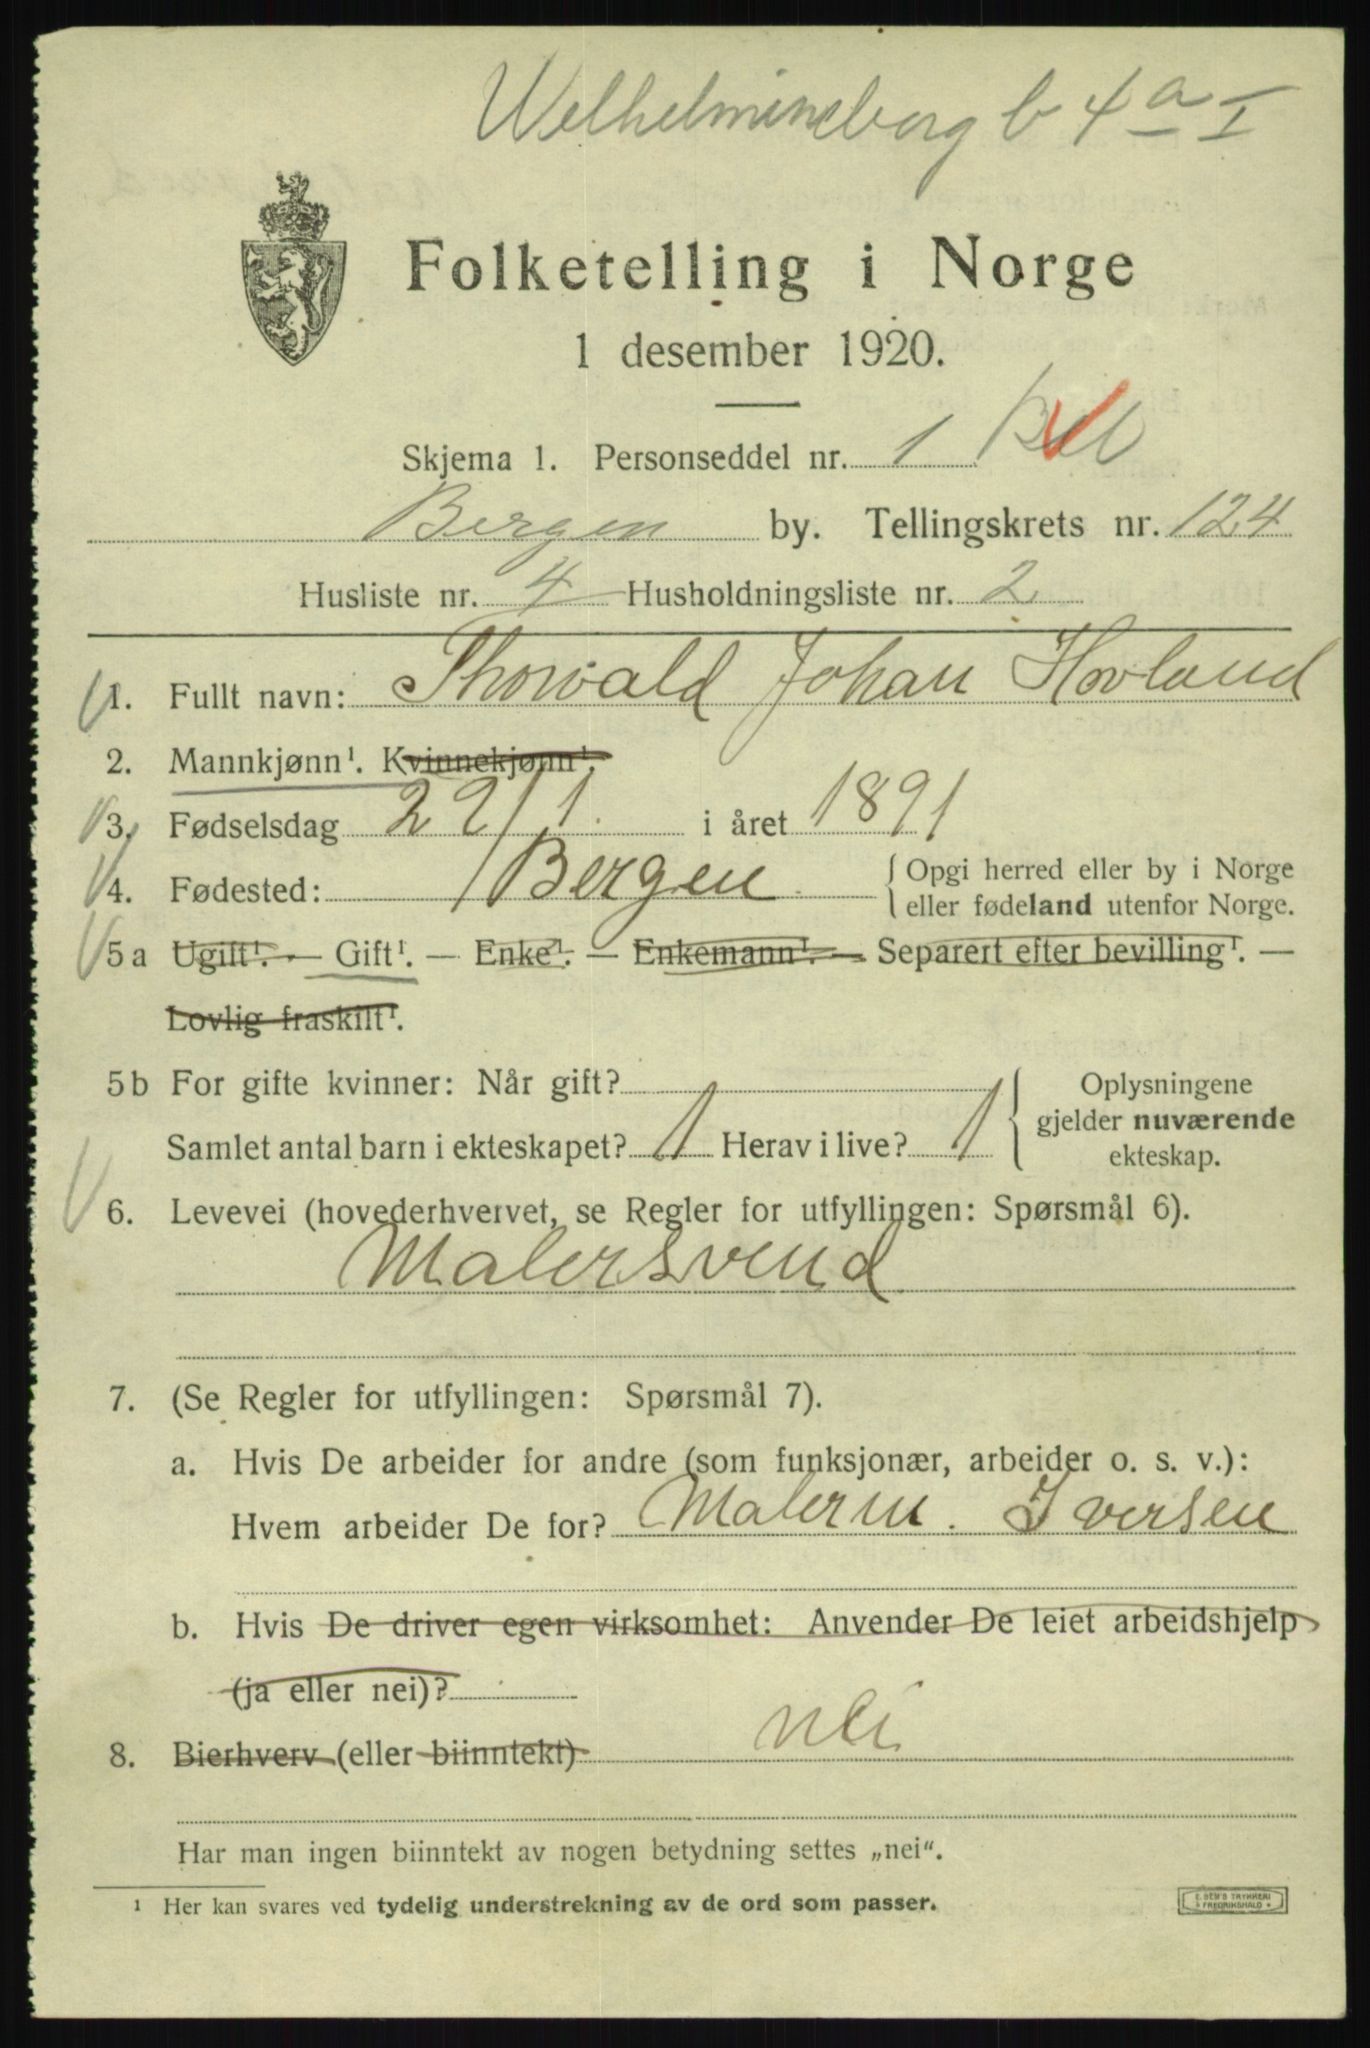 Welhelmineborg b 4 a I
Folketelling i Norge
1 desember 1920.
Skjema 1. Personseddel nr. 1
Bergen by. Tellingskrets nr. 124
Husliste nr. 4 Husholdningsliste nr. 2
1. Fullt navn: Thorvald Johan Hovland
2. Mannkjønn¹. Kvinnekjønn¹.
3. Fødselsdag 29/1. i året 1891
4. Fødested: Bergen { Opgi herred eller by i Norge
eller fødeland utenfor Norge.
5 a Ugift¹. — Gift¹. — Enke¹. — Enkemann¹. — Separert efter bevilling¹. —
Lovlig fraskilt¹.
5 b For gifte kvinner: Når gift? { Oplysningene
gjelder nuværende
ekteskap.
Samlet antal barn i ekteskapet? 1 Herav i live? 1
6. Levevei (hovederhvervet, se Regler for utfyllingen: Spørsmål 6).
Malersvend
7. (Se Regler for utfyllingen: Spørsmål 7).
a. Hvis De arbeider for andre (som funksjonær, arbeider o. s. v.):
Hvem arbeider De for? Malerm. Iversen
b. Hvis De driver egen virksomhet: Anvender De leiet arbeidshjelp
(ja eller nei)?
8. Bierhverv (eller biinntekt) nei
Har man ingen biinntekt av nogen betydning settes „nei“.
¹ Her kan svares ved tydelig understrekning av de ord som passer.
E. SEM'S TRYKKERI
FREDRIKSHALD